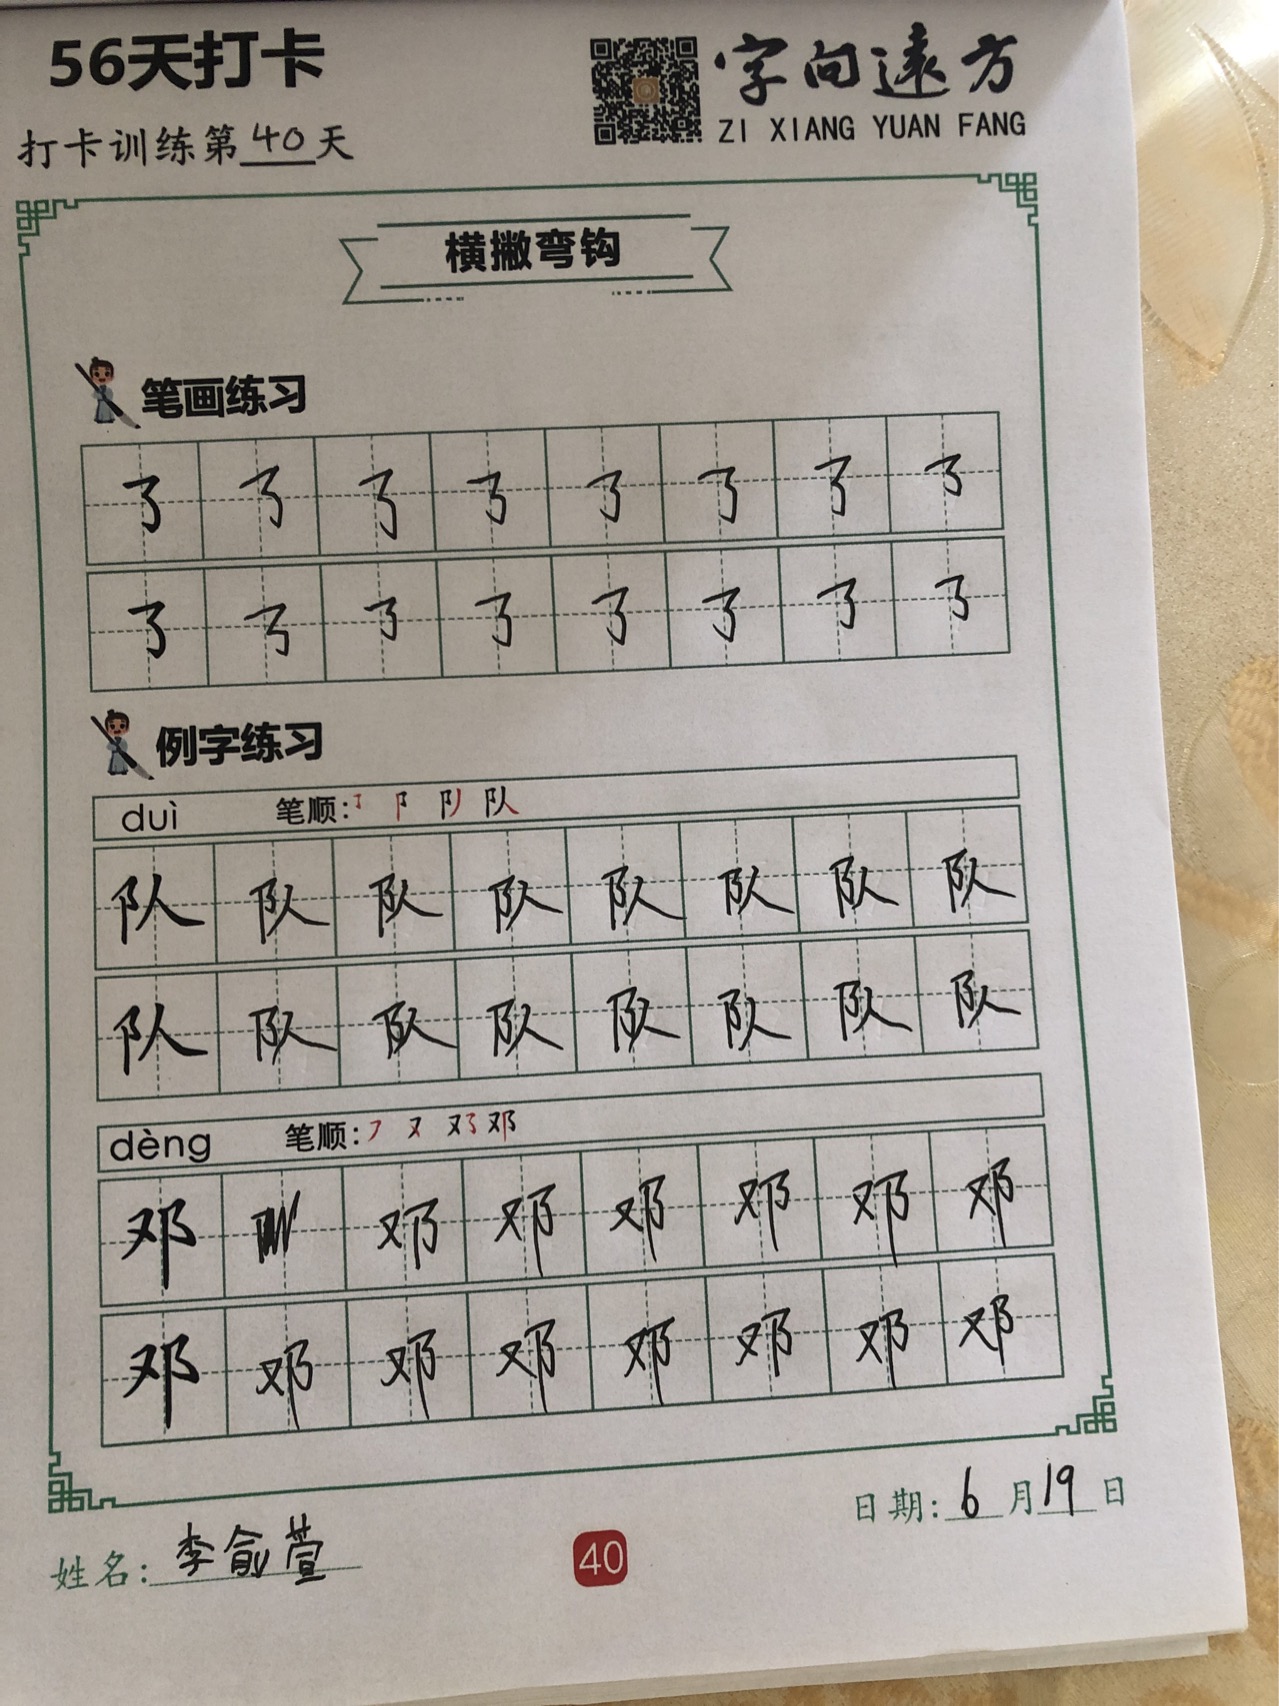 56天打卡
字向遠方
ZI XIANG YUAN FANG
打卡训练第40天
横撇弯钩
笔画练习
㇌ ㇌ ㇌ ㇌ ㇌ ㇌ ㇌ ㇌
㇌ ㇌ ㇌ ㇌ ㇌ ㇌ ㇌ ㇌
例字练习
duì 笔顺: ㇌ 阝 队
队 队 队 队 队 队 队 队
队 队 队 队 队 队 队 队
dèng 笔顺: ㇇ 又 邓
邓 邓 邓 邓 邓 邓 邓
邓 邓 邓 邓 邓 邓 邓 邓
日期: 6月19日
姓名: 李俞萱
40